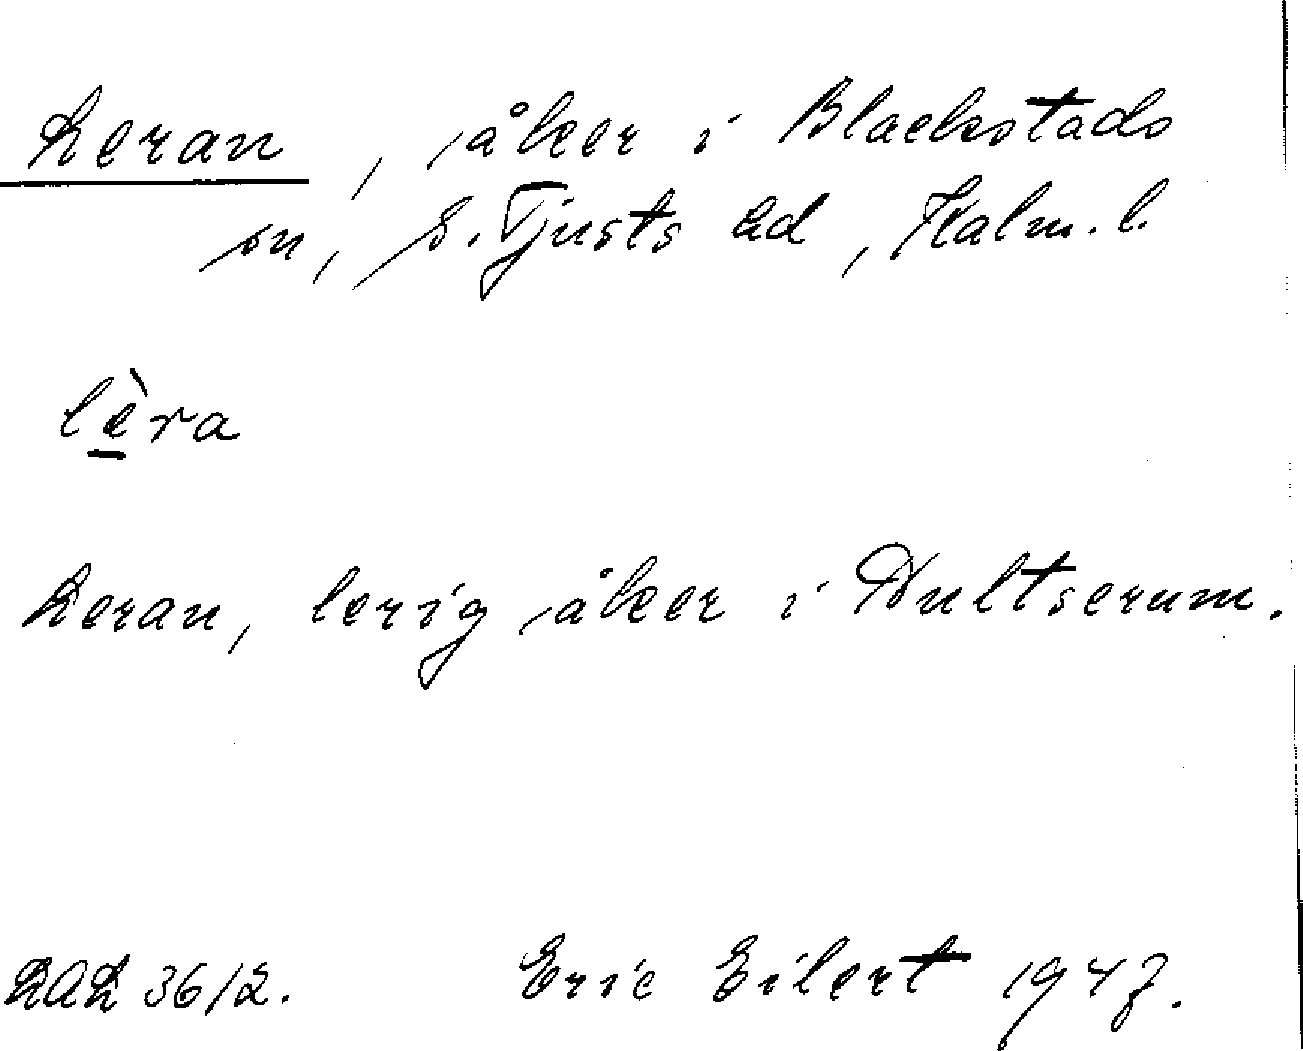 Leran, åker i Blackstads
sn, S. Tjusts hd, Kalm. l.
lèra
Leran, lerig åker i Hultserum.
LAL 36/2. Eric Eilert 1947.